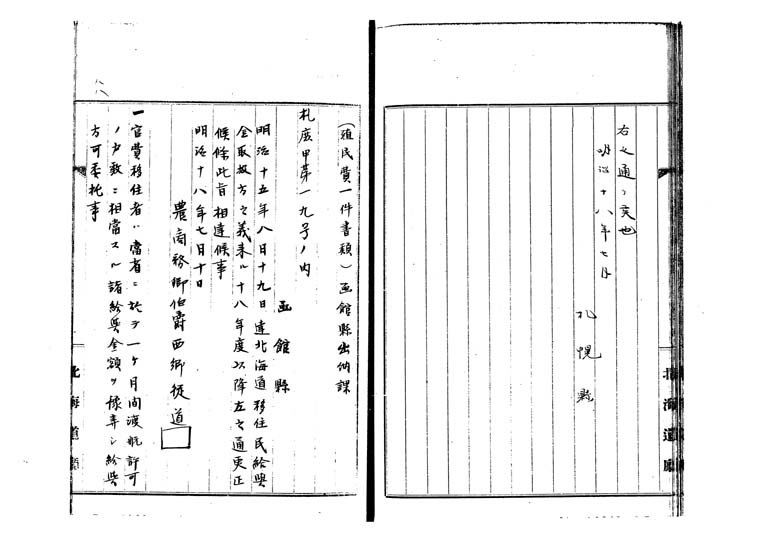 右之通リ定也
明治十八年七月
札幌縣
北海道廳
(殖民費一件書類)函館縣出納課
札農甲第一九号ノ内
函館縣
明治十五年八日十九日達北海道移住民給與
金取扱方之義来ル十八年度以降左之通更正
候條此旨相達候事
明治十八年七月十日
農商務卿伯爵西郷従道
一官費移住者ハ當省ニ於テ一ヶ月間渡航許可
ノ戸数ニ相當スル諸給與金額ヲ概算シ給與
方可委托事
北海道廳